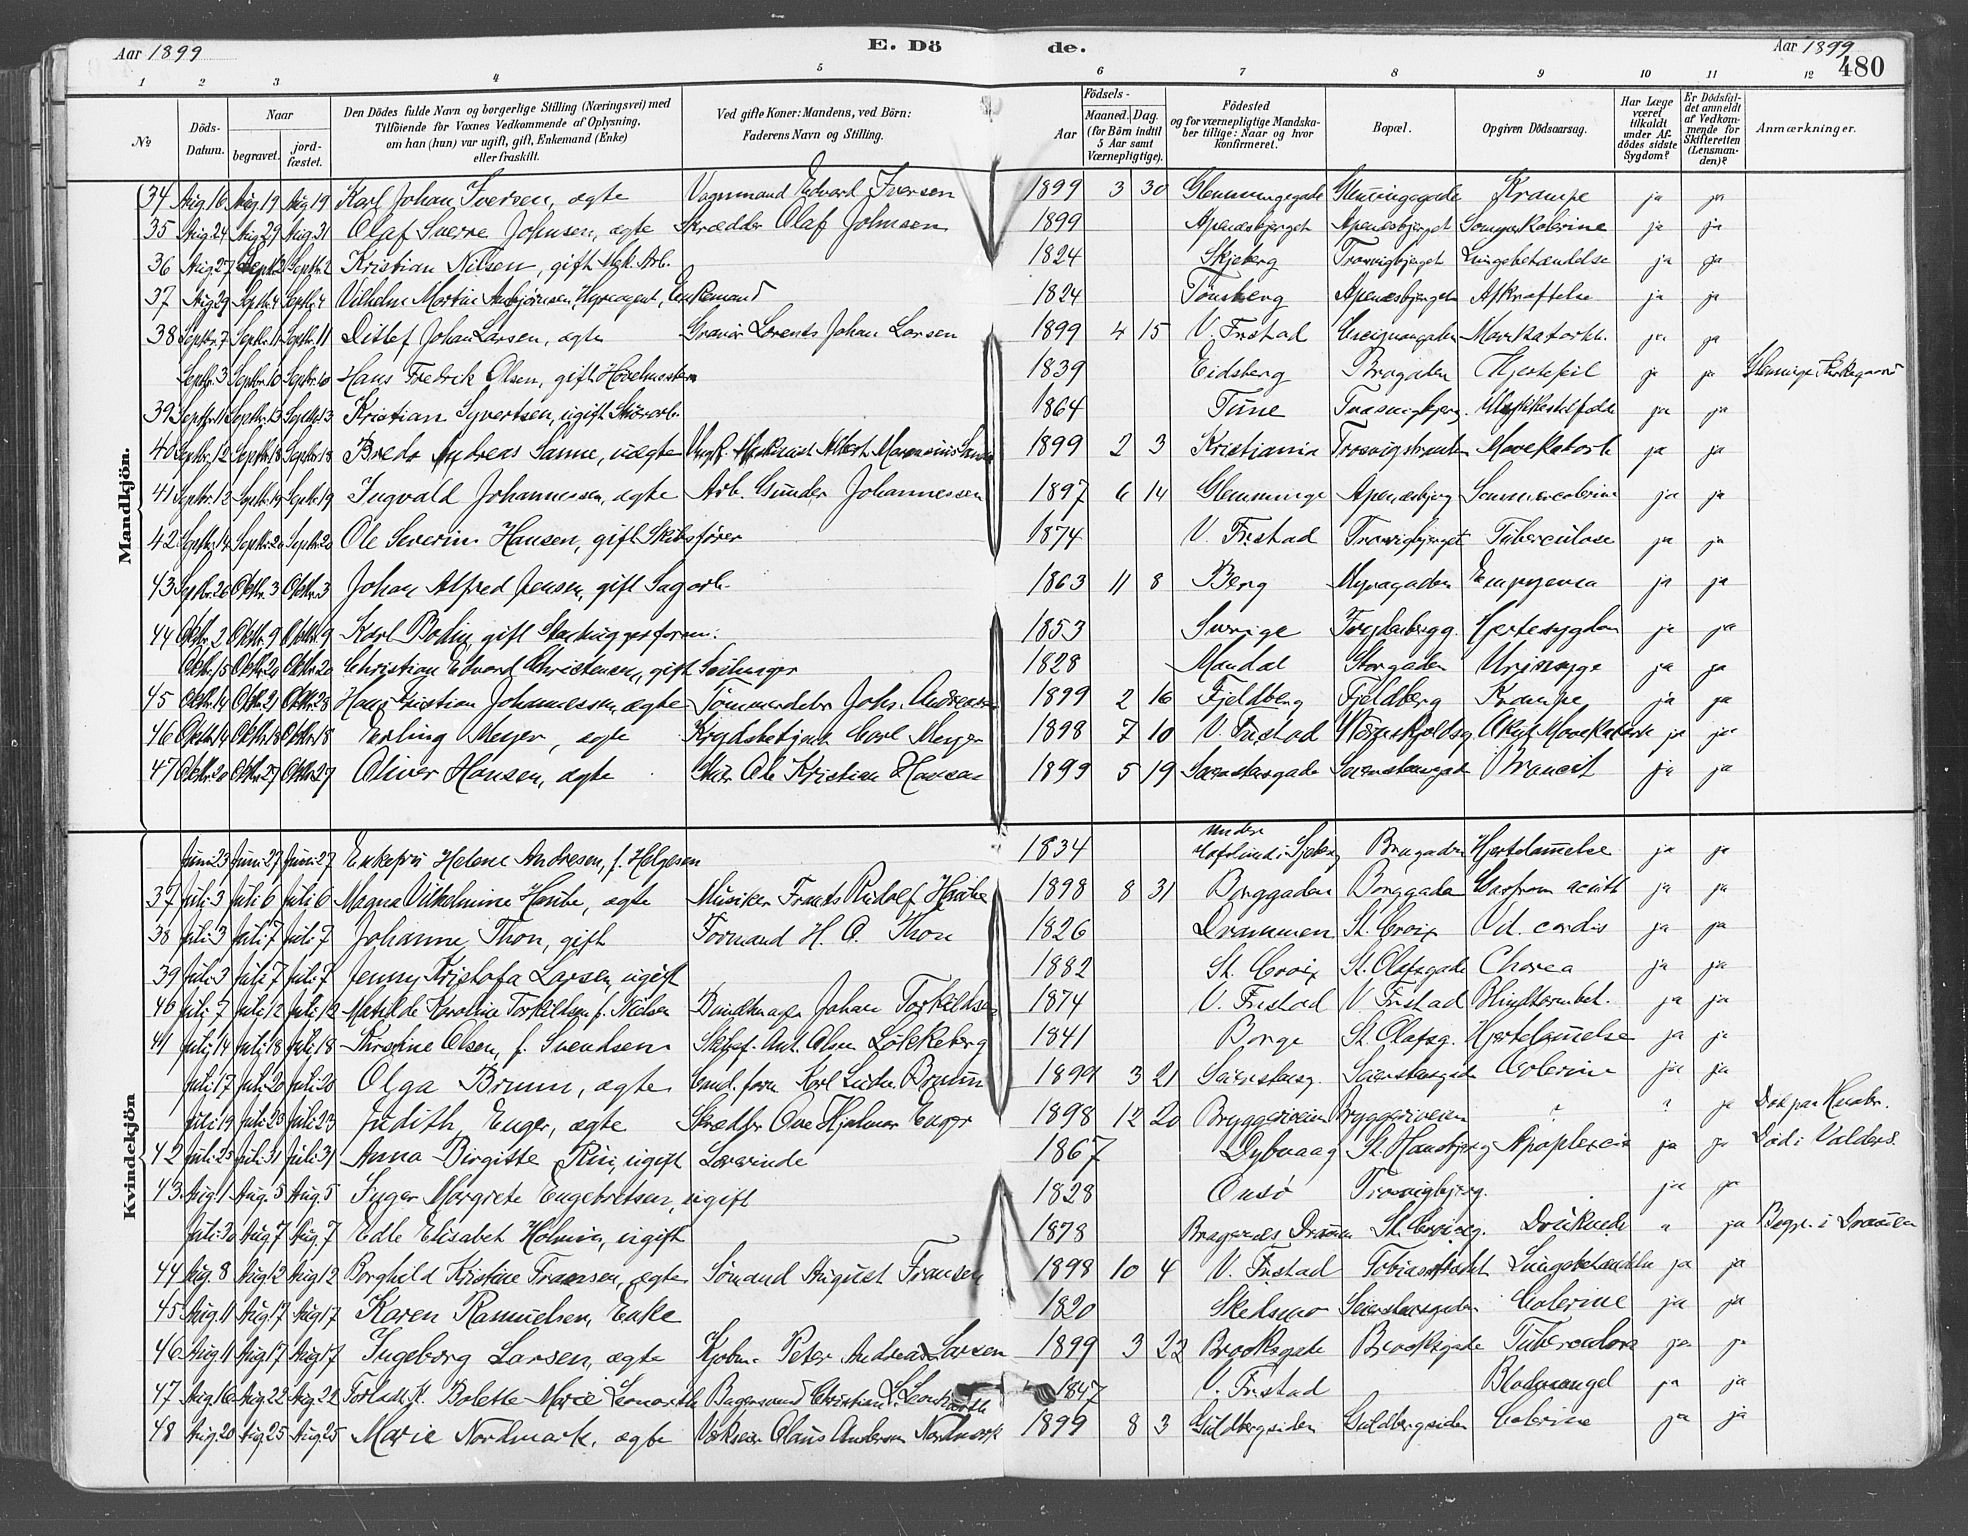 Aar 1899 E. Dö de. Aar 1899
480
1 2 3 4 5 6 7 8 9 10 11 12
№ Döds-Datum. Naar begravet. jord-fæstet. Den Dödes fulde Navn og borgerlige Stilling (Næringsvei) med Tilföiende for Voxnes Vedkommende af Oplysning, om han (hun) var ugift, gift, Enkemand (Enke) eller fraskilt. Ved gifte Koner: Mandens, ved Börn: Faderens Navn og Stilling. Födsels- Aar Maaned. Dag. (for Börn indtil 5 Aar samt Værnepligtige). Födested og for værnepligtige Mandska-ber tillige: Naar og hvor konfirmeret. Bopæl. Opgiven Dödsaarsag. Har Læge været tilkaldt under Af-dödes sidste Sygdom? Er Dödsfal-det anmeldt af Vedkom-mende for Skifteretten (Lensman-den)? Anmærkninger.
Mandkjön.
34 Aug.16 Aug.19 Aug.19 Karl Johan Iversen, ægte Vognmand Edvard Iversen 1899 3 30 Glemmingegade Glemmingegade Krampe ja ja
35 Aug.24 Aug.29 Aug.31 Olaf Sverre Johnsen, ægte Skrædder Olaf Johnsen 1899 Apenæsbjerget Apenæsbjerget ja ja
36 Aug.27 Septb.2 Septb.2 Kristian Nilsen, gift 1824 Skjeberg Trosvigbjerget Lungebetændelse ja ja
37 Aug.29 Septb.4 Septb.4 Vilhelm Martin Enkemand 1824 Tønsberg Apenæsbjerget Afkræftelse ja ja
38 Septbr.7 Septbr.11 Septbr.11 Ditlef Johan Larsen, ægte Gravør Lorents Johan Larsen 1899 4 15 V. Frstad ja ja
Septbr.3 Septbr.10 Septbr.10 Hans Fredrik Olsen, gift Høvelmester 1839 Eidsberg Brogaden Hjertefeil ja ja Glemminge Kirkegaard
39 Septbr.11 Septbr.13 Septbr.13 Kristian Syvertsen, ugift 1864 Tune Trosvigbjerg. Ulykkestilfælde ja ja
40 Septbr.12 Septbr.18 Septbr.18 Bredo Andreas Sanne, uægte 1899 2 3 Kristiania Mavekatarh ja ja
41 Septbr.13 Septbr.19 Septbr.19 Ingvald Johannessen, ægte Arb. Gunder Johannessen 1897 6 14 Glemminge Apenæsbjerg Sommercolerine ja ja
42 Septbr.14 Septbr.20 Septbr.20 Ole Severin Hansen, gift Skibsfører 1874 V. Frstad Trosvigbjerget Tuberculose ja ja
43 Septbr.26 Oktbr.3 Oktbr.3 Johan Alfred Jensen, gift Sagarb. 1863 11 8 Berg Myragaden Empyema ja ja
44 Oktbr.2 Oktbr.9 Oktbr.9 Karl Bodin, gift 1853 Sverige Hjertesygdom ja ja
Oktbr.15 Oktbr.20 Oktbr.20 Christian Edvard Christensen, gift Seilmager 1828 Mandal Storgaden Urinsyge ja ja
45 Oktbr.14 Oktbr.21 Oktbr.28 Hans Kristian Johannessen, ægte Tømmerdeler Johs. Andreassen 1899 2 16 Fjeldberg Fjeldberg Krampe ja ja
46 Oktbr.14 Oktbr.18 Oktbr.18 Erling Meyer, ægte Krydsbetjent Carl Meyer 1898 7 10 V. Frstad Akut Mavekatarh ja ja
47 Oktbr.20 Oktbr.27 Oktbr.27 Oliver Hansen, ægte Stuer Ole Kristian Hansen 1899 5 19 ja ja
Kvindekjön
Juni 23 Juni 27 Juni 27 Enkefru Helene Andresen, f. Helgesen 1834 Brogaden Hjertelammelse ja ja
37 Juli 3 Juli 6 Juli 6 Magna Vilhelmine Haube, ægte Musiker Frants Rudolf Haube 1898 8 31 Borggaden Borggaden ja ja
38 Juli 3 Juli 7 Juli 7 Johanne Thon, gift Formand H. O. Thon 1826 Drammen St. Croix Vit. cordis ja ja
39 Juli 3 Juli 7 Juli 7 Jenny Kristofa Larsen, ugift 1882 St. Croix St. Olafsgade Chorea ja ja
40 Juli 7 Juli 12 Juli 12 Matilde Karoline Torkildsen, f. Nielsen Johan Torkildsen 1874 V. Frstad V. Frstad Blindtarmbet. ja ja
41 Juli 14 Juli 18 Juli 18 Kristine Olsen, f. Svendsen Skbsf. Ant. Olsen Løkkeberg 1841 Borge St. Olafsg. Hjertelammelse ja ja
Juli 17 Juli 20 Juli 20 Olga Brunn, ægte Karl Ludv. Brunn 1899 3 21 Colerine ja ja
Juli 19 Juli 23 Juli 23 Judith Enger, ægte Skrædder Ove Hjalmar Enger 1898 12 20 Bryggeriveien Bryggeriveien ? ? ja Død paa Hvaler.
42 Juli 25 Juli 31 Juli 31 Anna Birgitte ugift Lærerinde 1867 Dybvaag St. Hansbjerg Apoplexia ja ja Død i Valders.
43 Aug.1 Aug.5 Aug.5 Inger Margrete Engebretsen, ugift 1828 Onsø Trosvigbjerg. ja ja
Juli 30 Aug.7 Aug.7 Edle Elisabet Holmin, ugift 1878 Bragernes Drammen St. Croixg. Druknede " ja Begr. i Drammen
44 Aug.8 Aug.12 Aug.12 Borghild Kristine Fransen, ægte Sømand August Fransen 1898 10 4 V. Frstad Lungebetændelse ja ja
45 Aug.11 Aug.17 Aug.17 Karen Ramuelsen, Enke 1820 Skedsmo Colerine ja ja
46 Aug.11 Aug.17 Aug.17 Ingeborg Larsen, ægte Kjøbm. Peter Andreas Larsen 1899 3 22 Brooksgade Brooksgade Tuberculose ja ja
47 Aug.16 Aug.22 Aug.22 Bolette Marie Christian 1847 V. Frstad Blodmangel ja ja
48 Aug.20 Aug.25 Aug.25 Marie Nordmark, ægte Olaus Andersen Nordmark 1899 8 3 Guldbergsiden Guldbergsiden Colerine ja ja